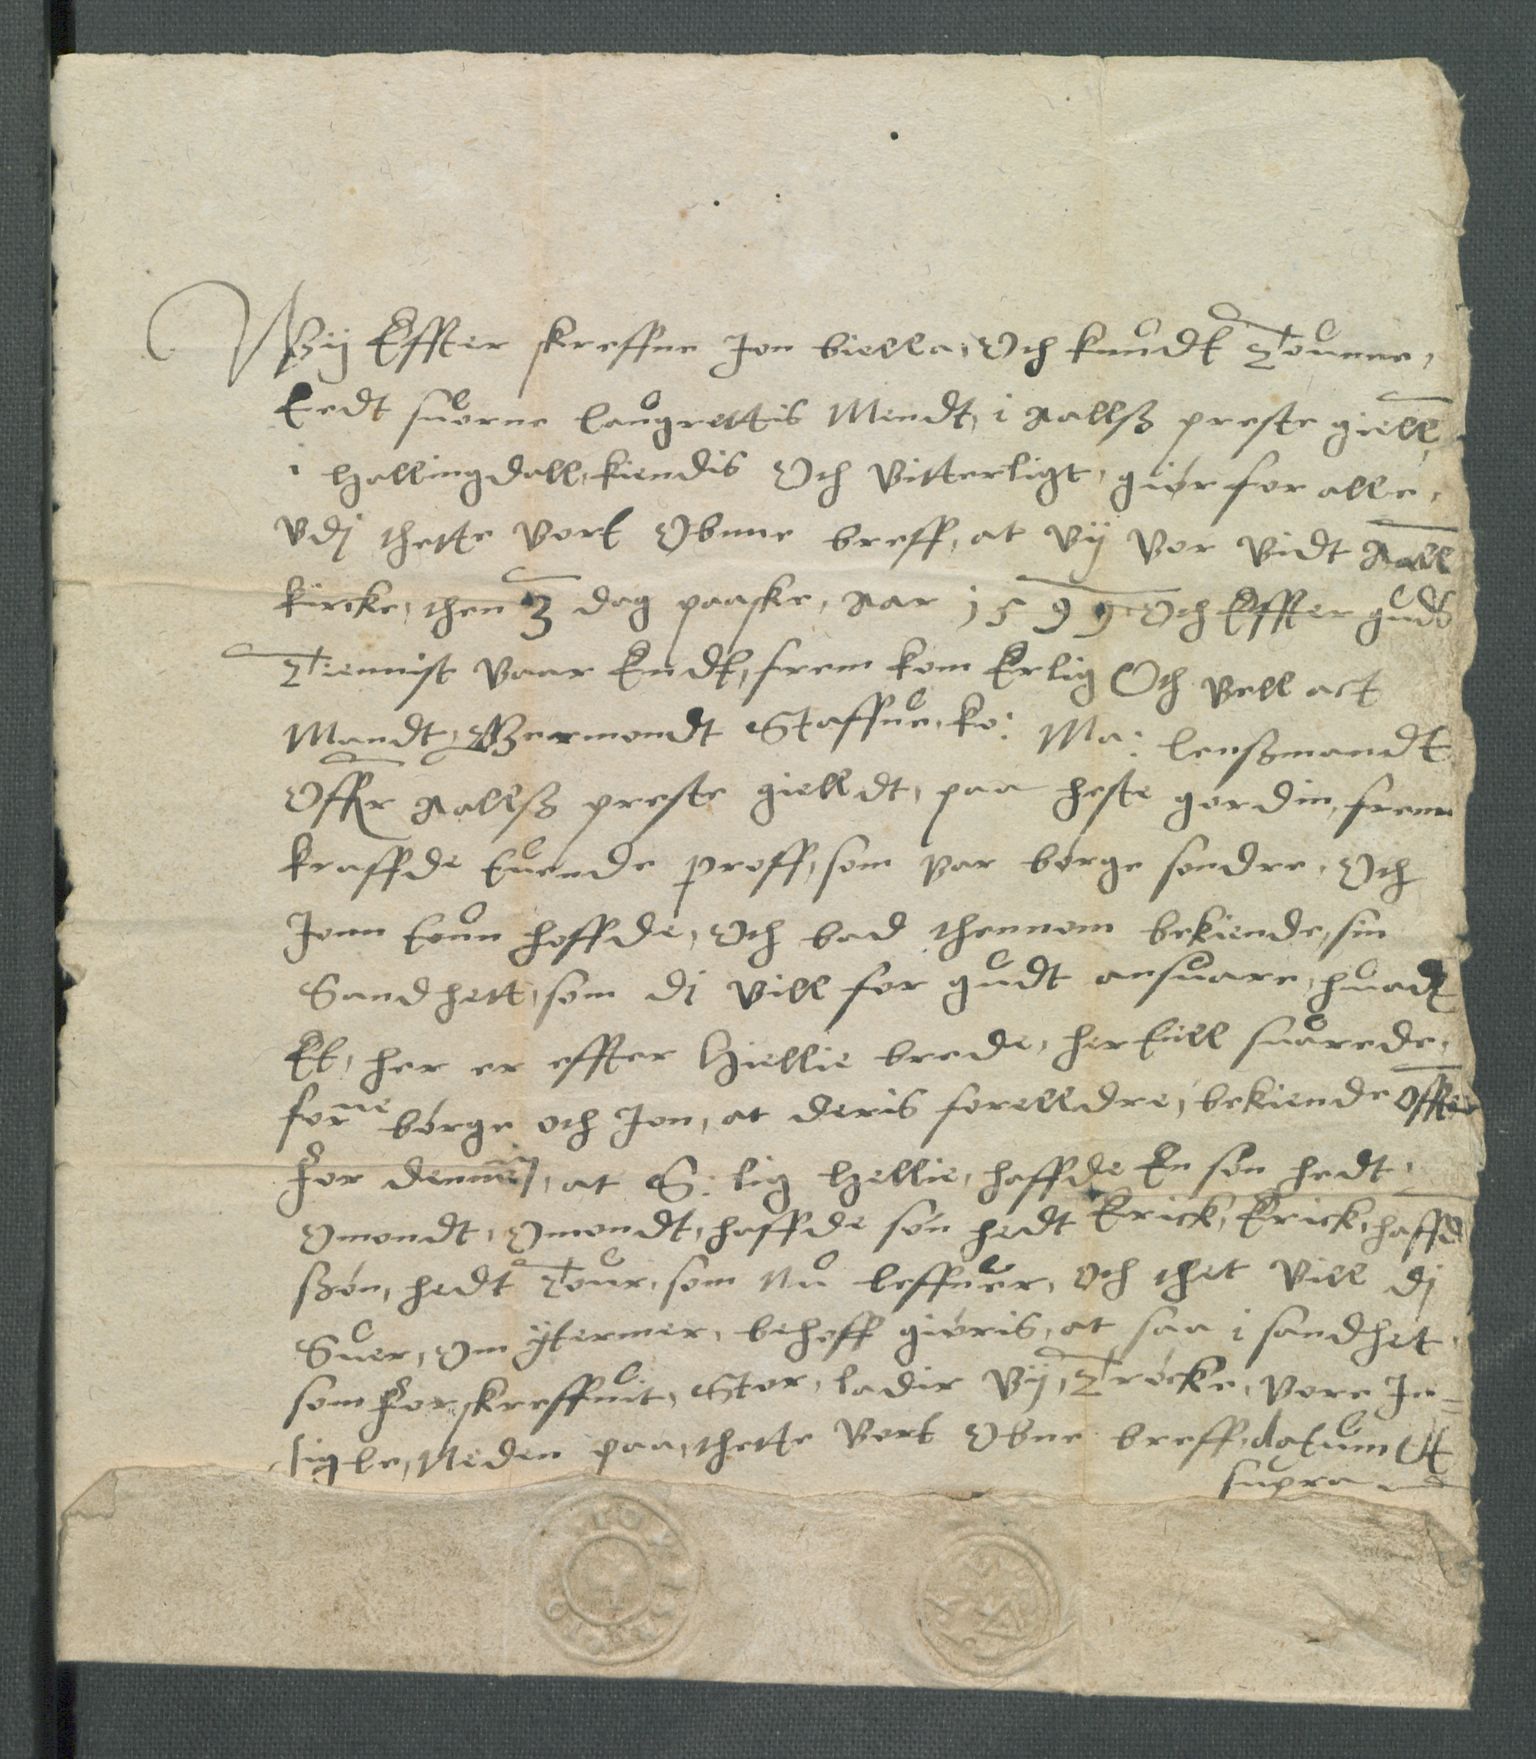 Wij Effter skreffne Jon biella, Och knudt Tounne,
Eedt suorne laugrettis Mendt, i Aallß preste giell,
i Hallingdall, kiendis Och Vitterligt, giør for alle,
Vdj thette Vort Obnne breff, at Vij Vor Vidt Aall
kircke, then 3 dag paaske, Aar 1599 Och Effter guds
Tiennist Vaar Endt, frem kom Erlig Och Vell act
Mandt, Bermondt Staffne, ko: Ma: lenßmandt
Offr Aallß preste gielldt, paa heste gordin, frem
kraffde Euende proff, som Var børge søndre, Och
Jonn Eoun hoffde, Och bad thennom bekiende, sin
Sandhett, som dj Vill for gudt ansuare, huadt
Et, her er effter Hiellie brede, her till suarede,
forne børge och Jon, at deris forelldre, bekiende Offte
For dennem, at S: lig Hellie, haffde En søn hedt,
Omondt, Omondt, haffde søn hedt Erick, Erick, haffd
ßøn, hedt Tour, som Nu leffuer, Och thet Vill dj
Suer, Om ytermer, behoff giøris, at saa i sandhet,
som For skreffuit, Stor, ladir Vij, Trøcke, Vore In=
sigle, Neden paa, thette Vort Obne breff, datum Ut
supra